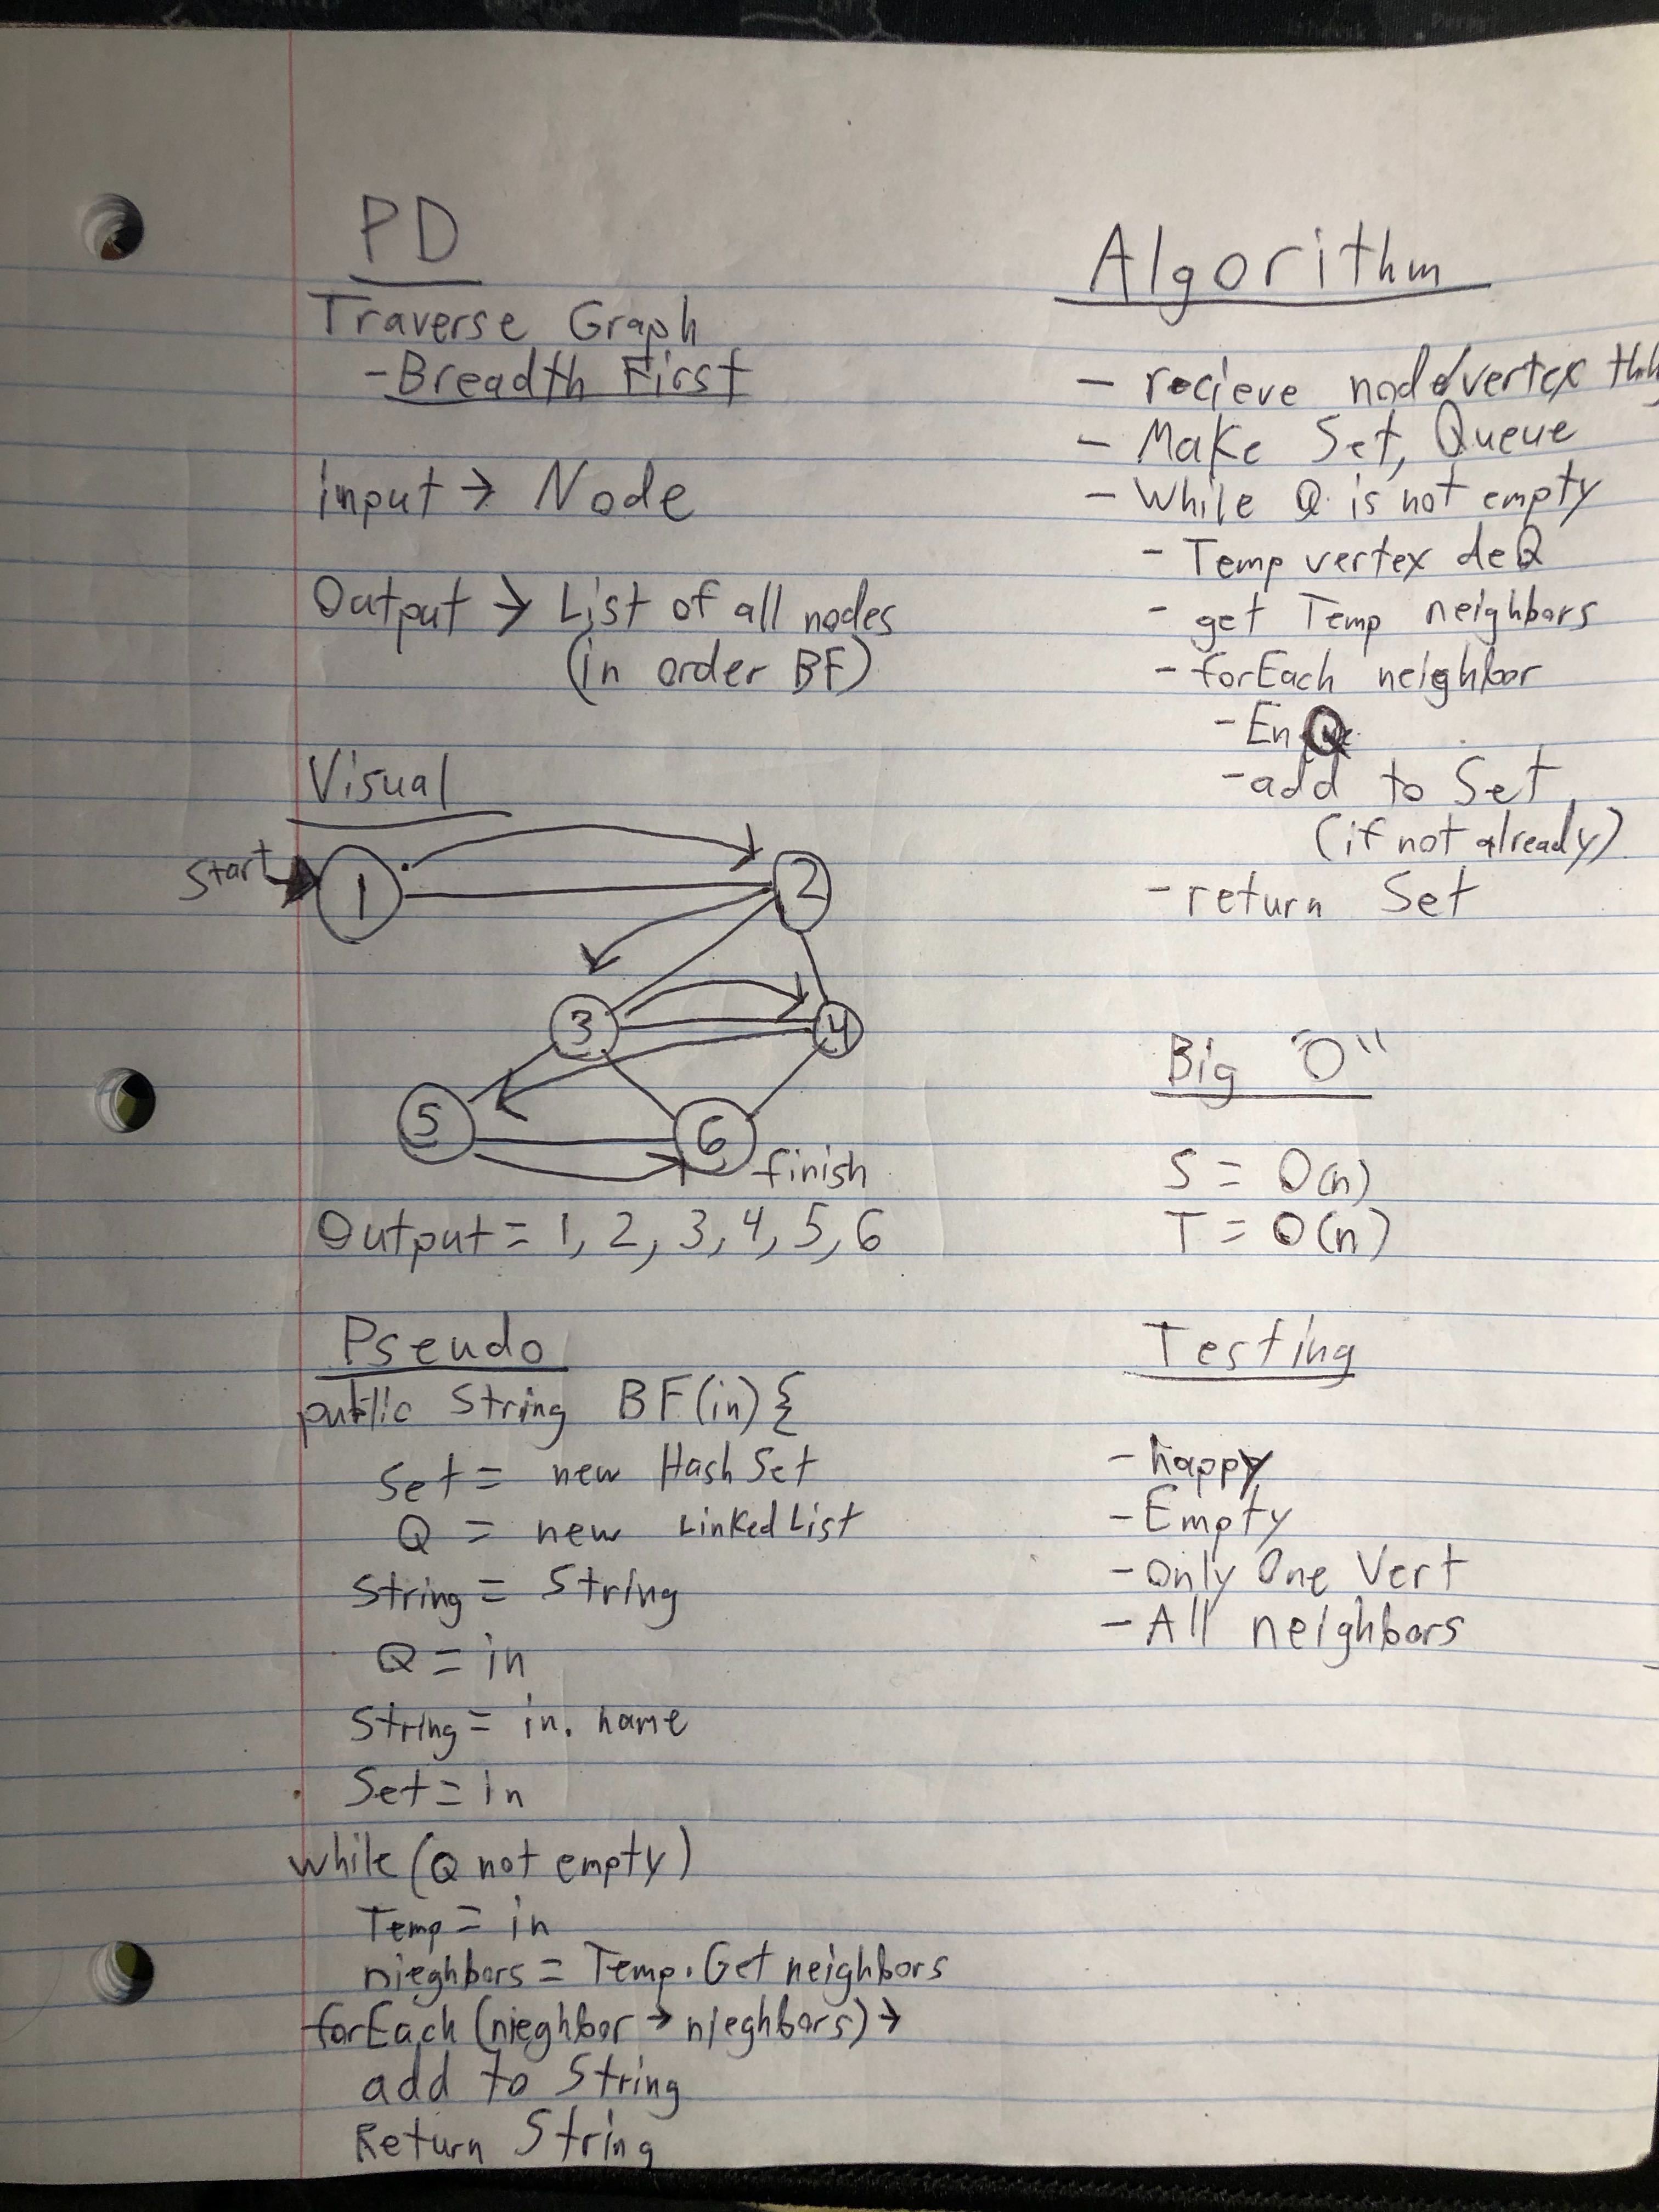 PD
Traverse Graph
-Breadth First
input → Node
Output → List of all nodes
(in order BF)
Visual
Start
1
2
3
4
5
6
finish
Output = 1, 2, 3, 4, 5, 6
Pseudo
public String BF(in) {
Set = new HashSet
Q = new LinkedList
String = String
Q = in
String = in. name
Set = in
while (Q not empty)
Temp = in
nieghbors = Temp.Get neighbors
forEach (nieghbor → nieghbors) →
add to String
Return String
Algorithm
- recieve node/vertex
- Make Set, Queue
- While Q is not empty
- Temp vertex deQ
- get Temp neighbors
- forEach neighbor
- EnQ
- add to Set
(if not already)
- return Set
Big "O"
S = O(n)
T = O(n)
Testing
- happy
- Empty
- Only One Vert
- All neighbors